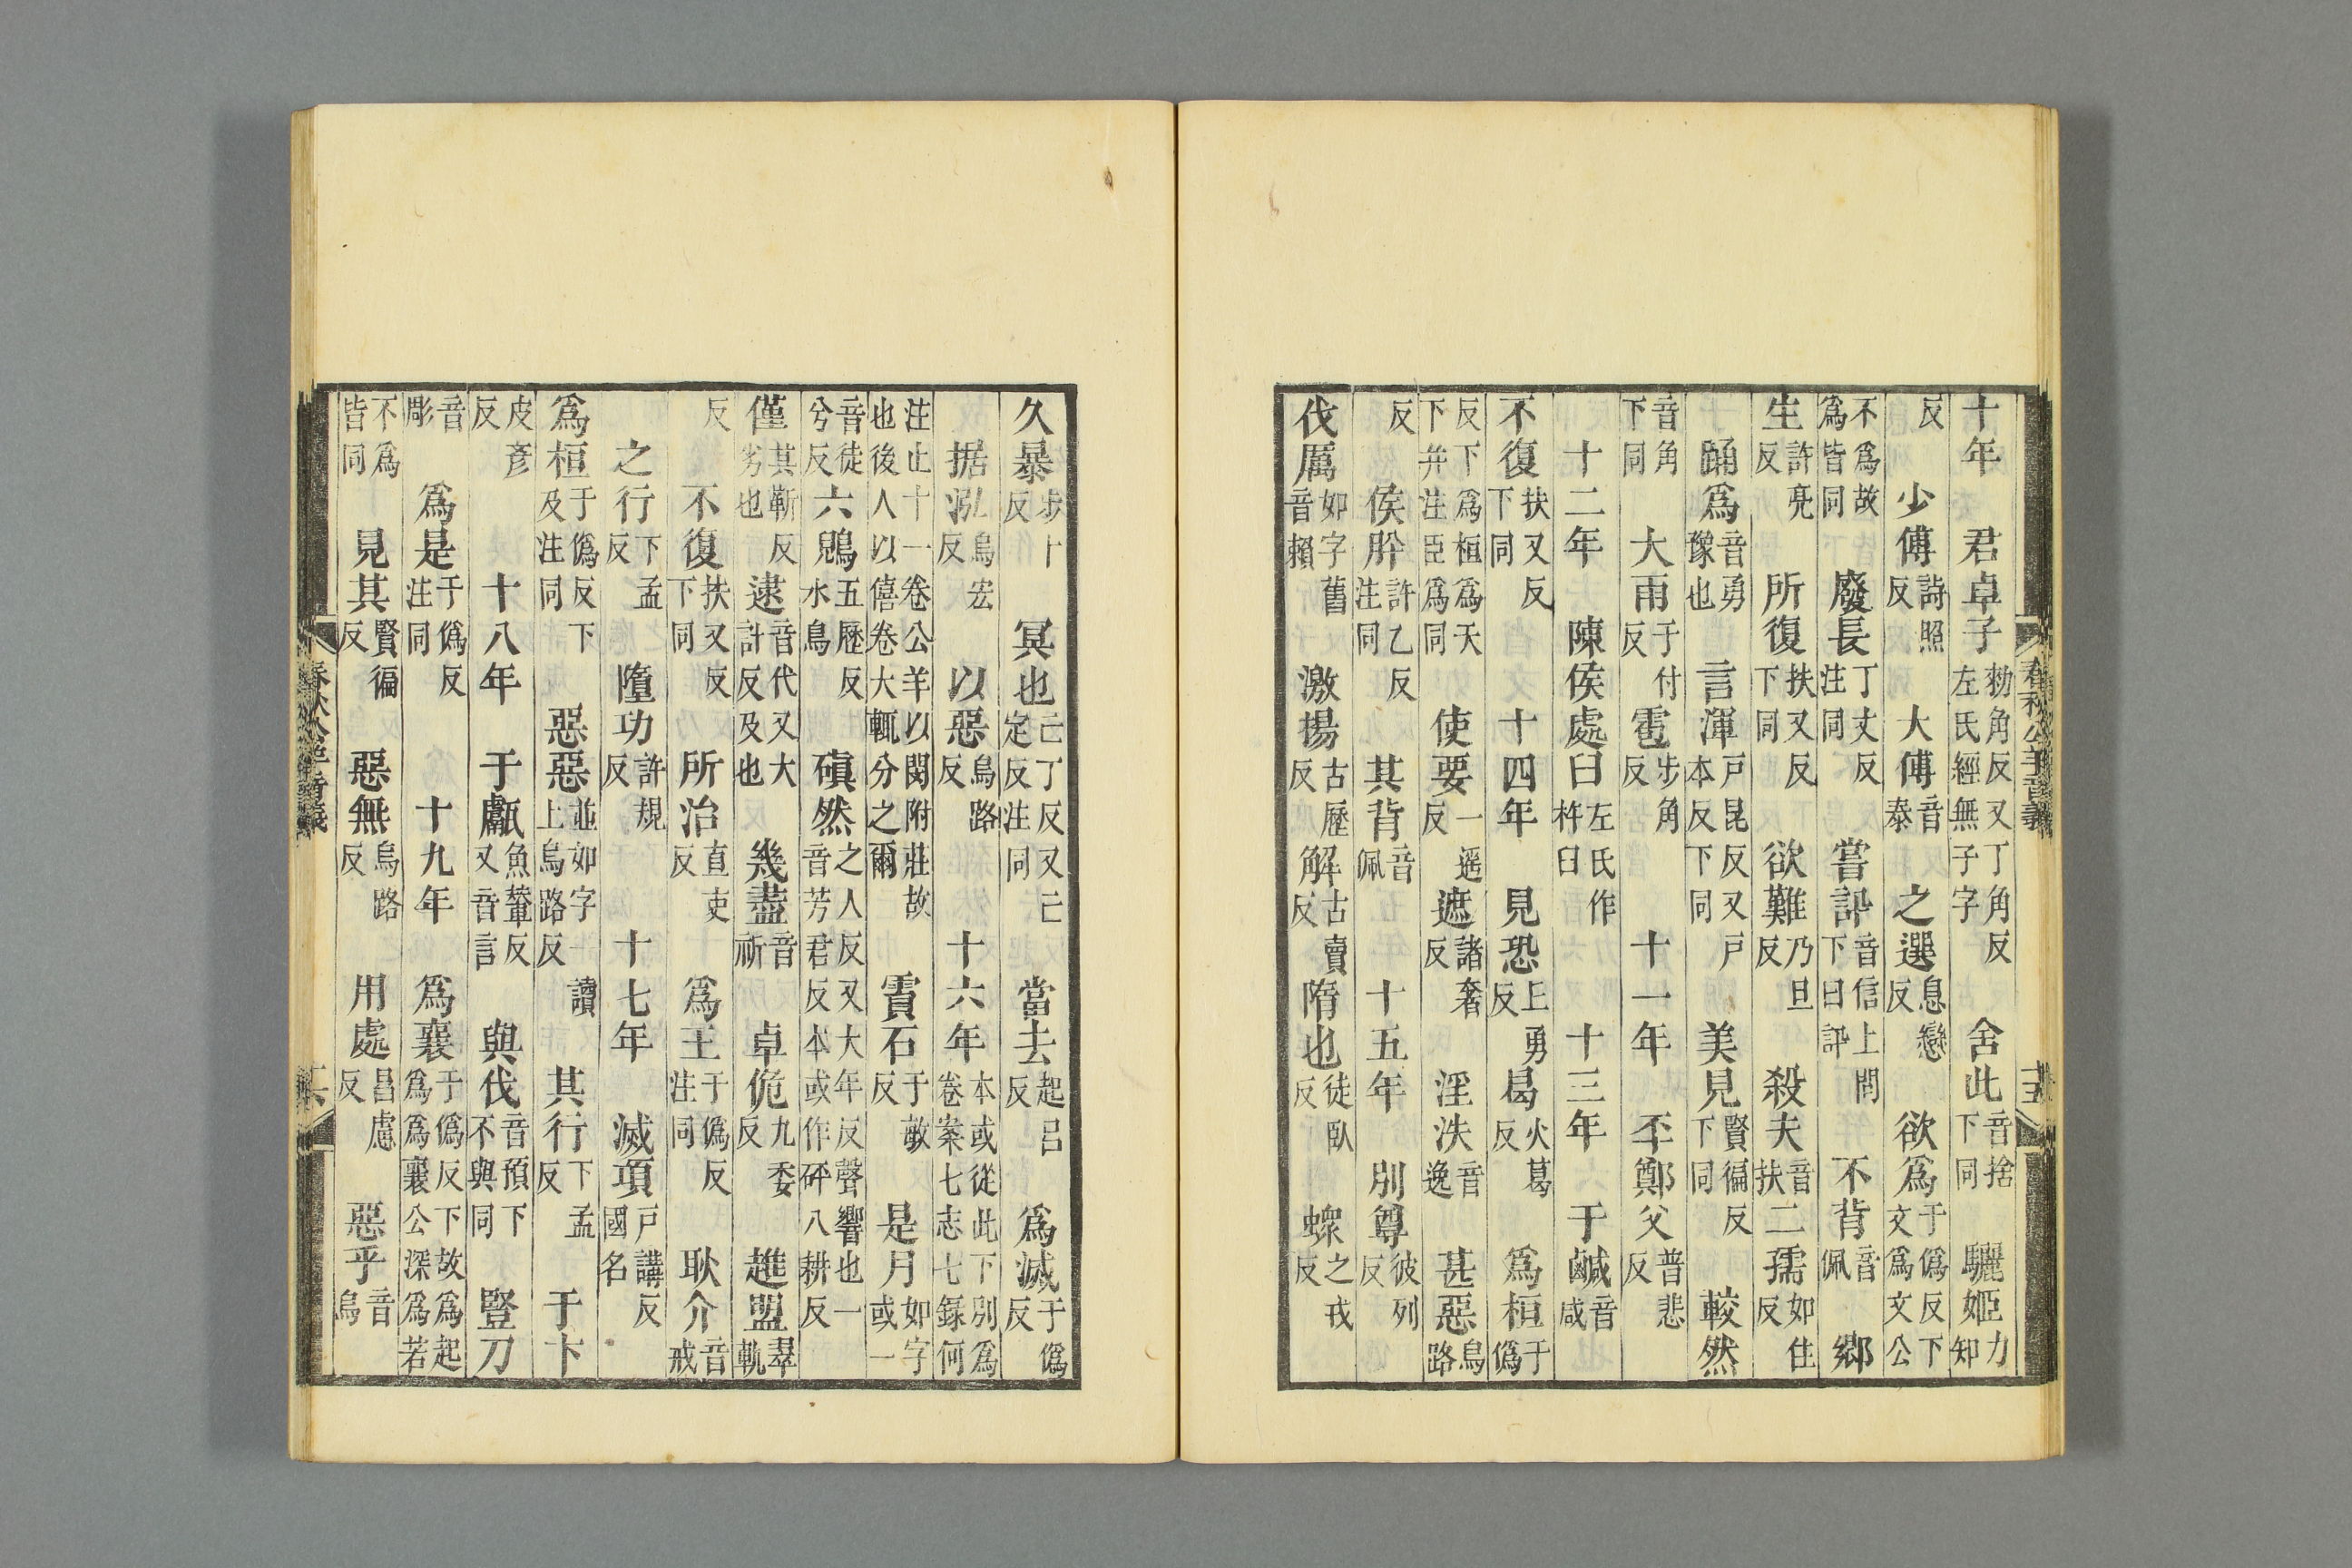 十年　君卓子勑角反又丁角反左氏經無子字　舍此音捨下同　驪姬力知
反　少傅詩照反　大傅音泰　之選息戀反　欲爲于僞反下文爲文公
不爲故爲皆同　廢長丁丈反注同　嘗訊音信上問下曰訊　不背音佩　鄉
生許亮反　所復扶又反下同　欲難乃旦反　殺夫音扶二孺如住反
踊爲音勇豫也　言渾戸昆反又戸本反下同　美見賢徧反下同　較然
音角下同　大雨于付反　雹步角反　十一年　㔻鄭父普悲反
十二年　陳侯處臼左氏作杵臼　十三年　于鹹音咸
不復扶又反下同　十四年　見恐丘勇反　曷火葛反　爲桓于僞
反下爲桓爲天下并注臣爲同　使要一遥反　遮諸奢反　淫泆音逸　甚惡烏路
反　侯肸許乙反注同　其背音佩　十五年　別尊彼列反
伐厲如字舊音賴　激揚古歷反　解古賣反　隋也徒臥反　蠓之戎反
春秋公羊音義
十五
久暴步卜反　冥也亡丁反又亡定反注同　當去起呂反　爲滅于僞反
据泓烏宏反　以惡烏路反　十六年本或從此下別爲卷案七志七錄何
注止十一卷公羊以閔附莊故也後人以僖卷大輒分之爾　霣石于敏反　是月如字或一
音徒兮反　六鶂五歷反水鳥　磌然之人反又大年反聲響也一音芳君反本或作砰八耕反
僅其靳反劣也　逮音代又大計反及也　幾盡音祈　卓佹九委反　趡盟翠軌
反　不復扶又反下同　所治直吏反　爲王于僞反注同　耿介音戒
之行下孟反　隳功許規反　十七年　滅項戸講反國名
爲桓于僞反下及注同　惡惡並如字一讀上烏路反　其行下孟反　于卞
皮彥反　十八年　于甗魚輦反又音言　與伐音預下不與同　豎刀
音彫　爲是于僞反注同　十九年　爲襄于僞反下故爲起爲爲襄公深爲若
不爲皆同　見其賢徧反　惡無烏路反　用處昌慮反　惡乎音烏
春秋公羊音義